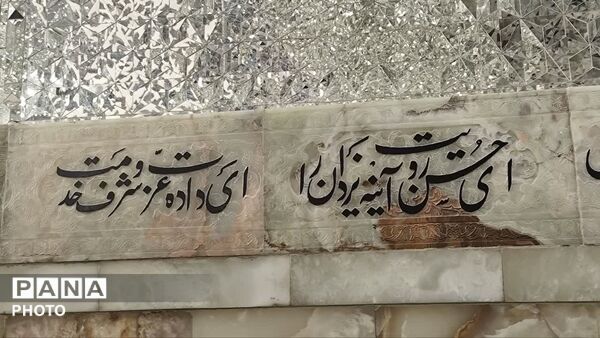 ای حسن رویت آینه یزدان را
ای داده عزّت و شرف خدمت
PANA
PHOTO